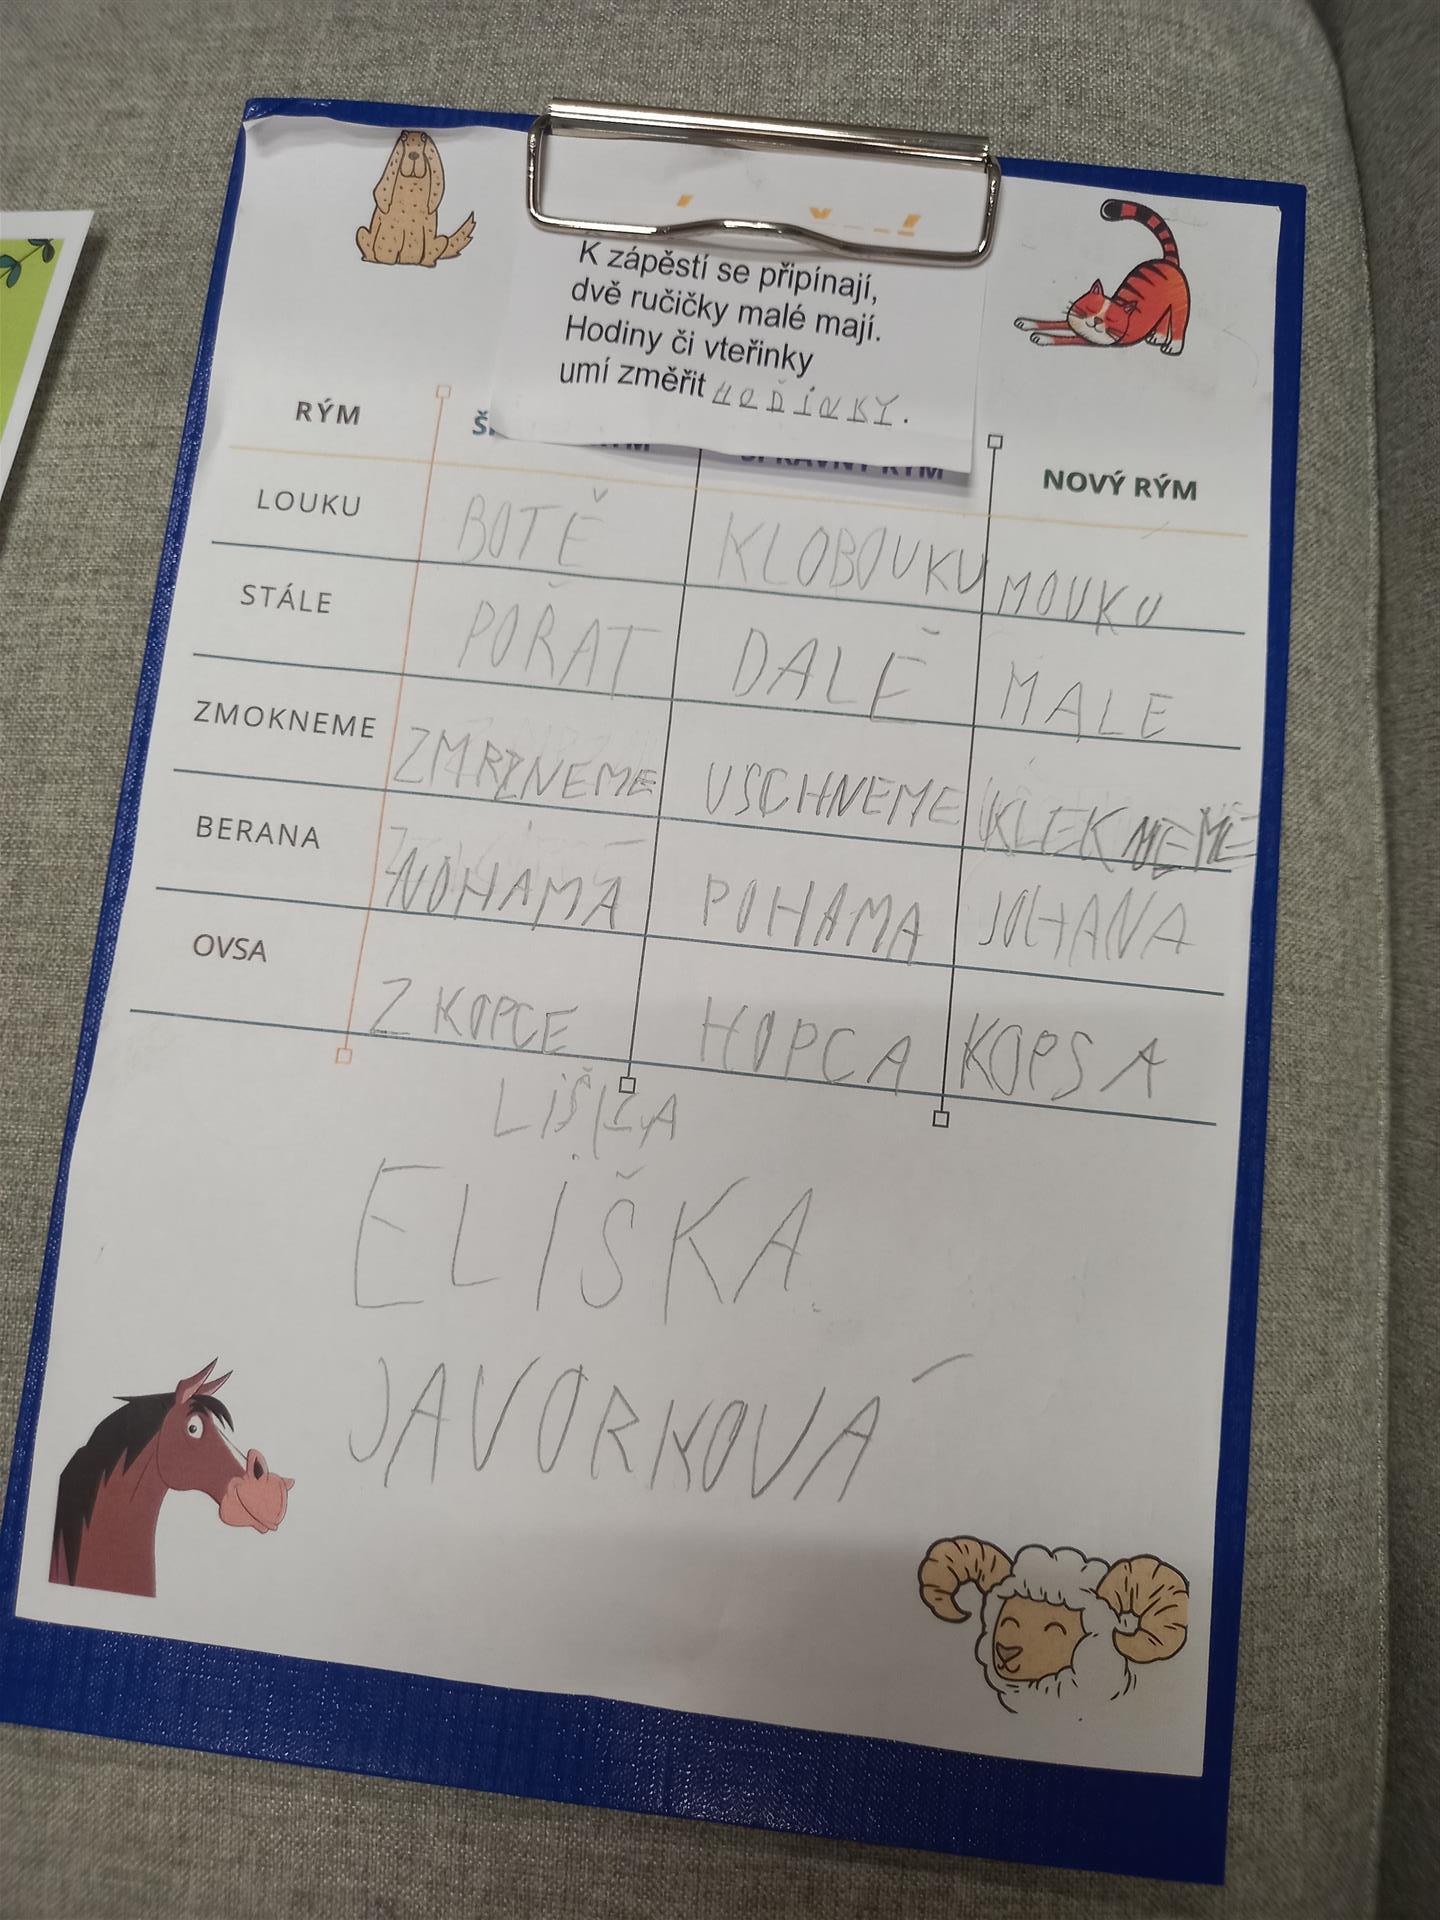 K zápěstí se připínají,
dvě ručičky malé mají.
Hodiny či vteřinky
umí změřit HODINKY.
RÝM SPRÁVNÝ RÝM NOVÝ RÝM
LOUKU BOTĚ KLOBOUKU MOUKU
STÁLE POŘAT DALE MALE
ZMOKNEME ZMRZNEME USCHNEME KLEKNEME
BERANA NOHAMA POHAMA JOHANA
OVSA Z KOPCE HOPCA KOPSA
LIŠKA
ELIŠKA
JAVORKOVÁ